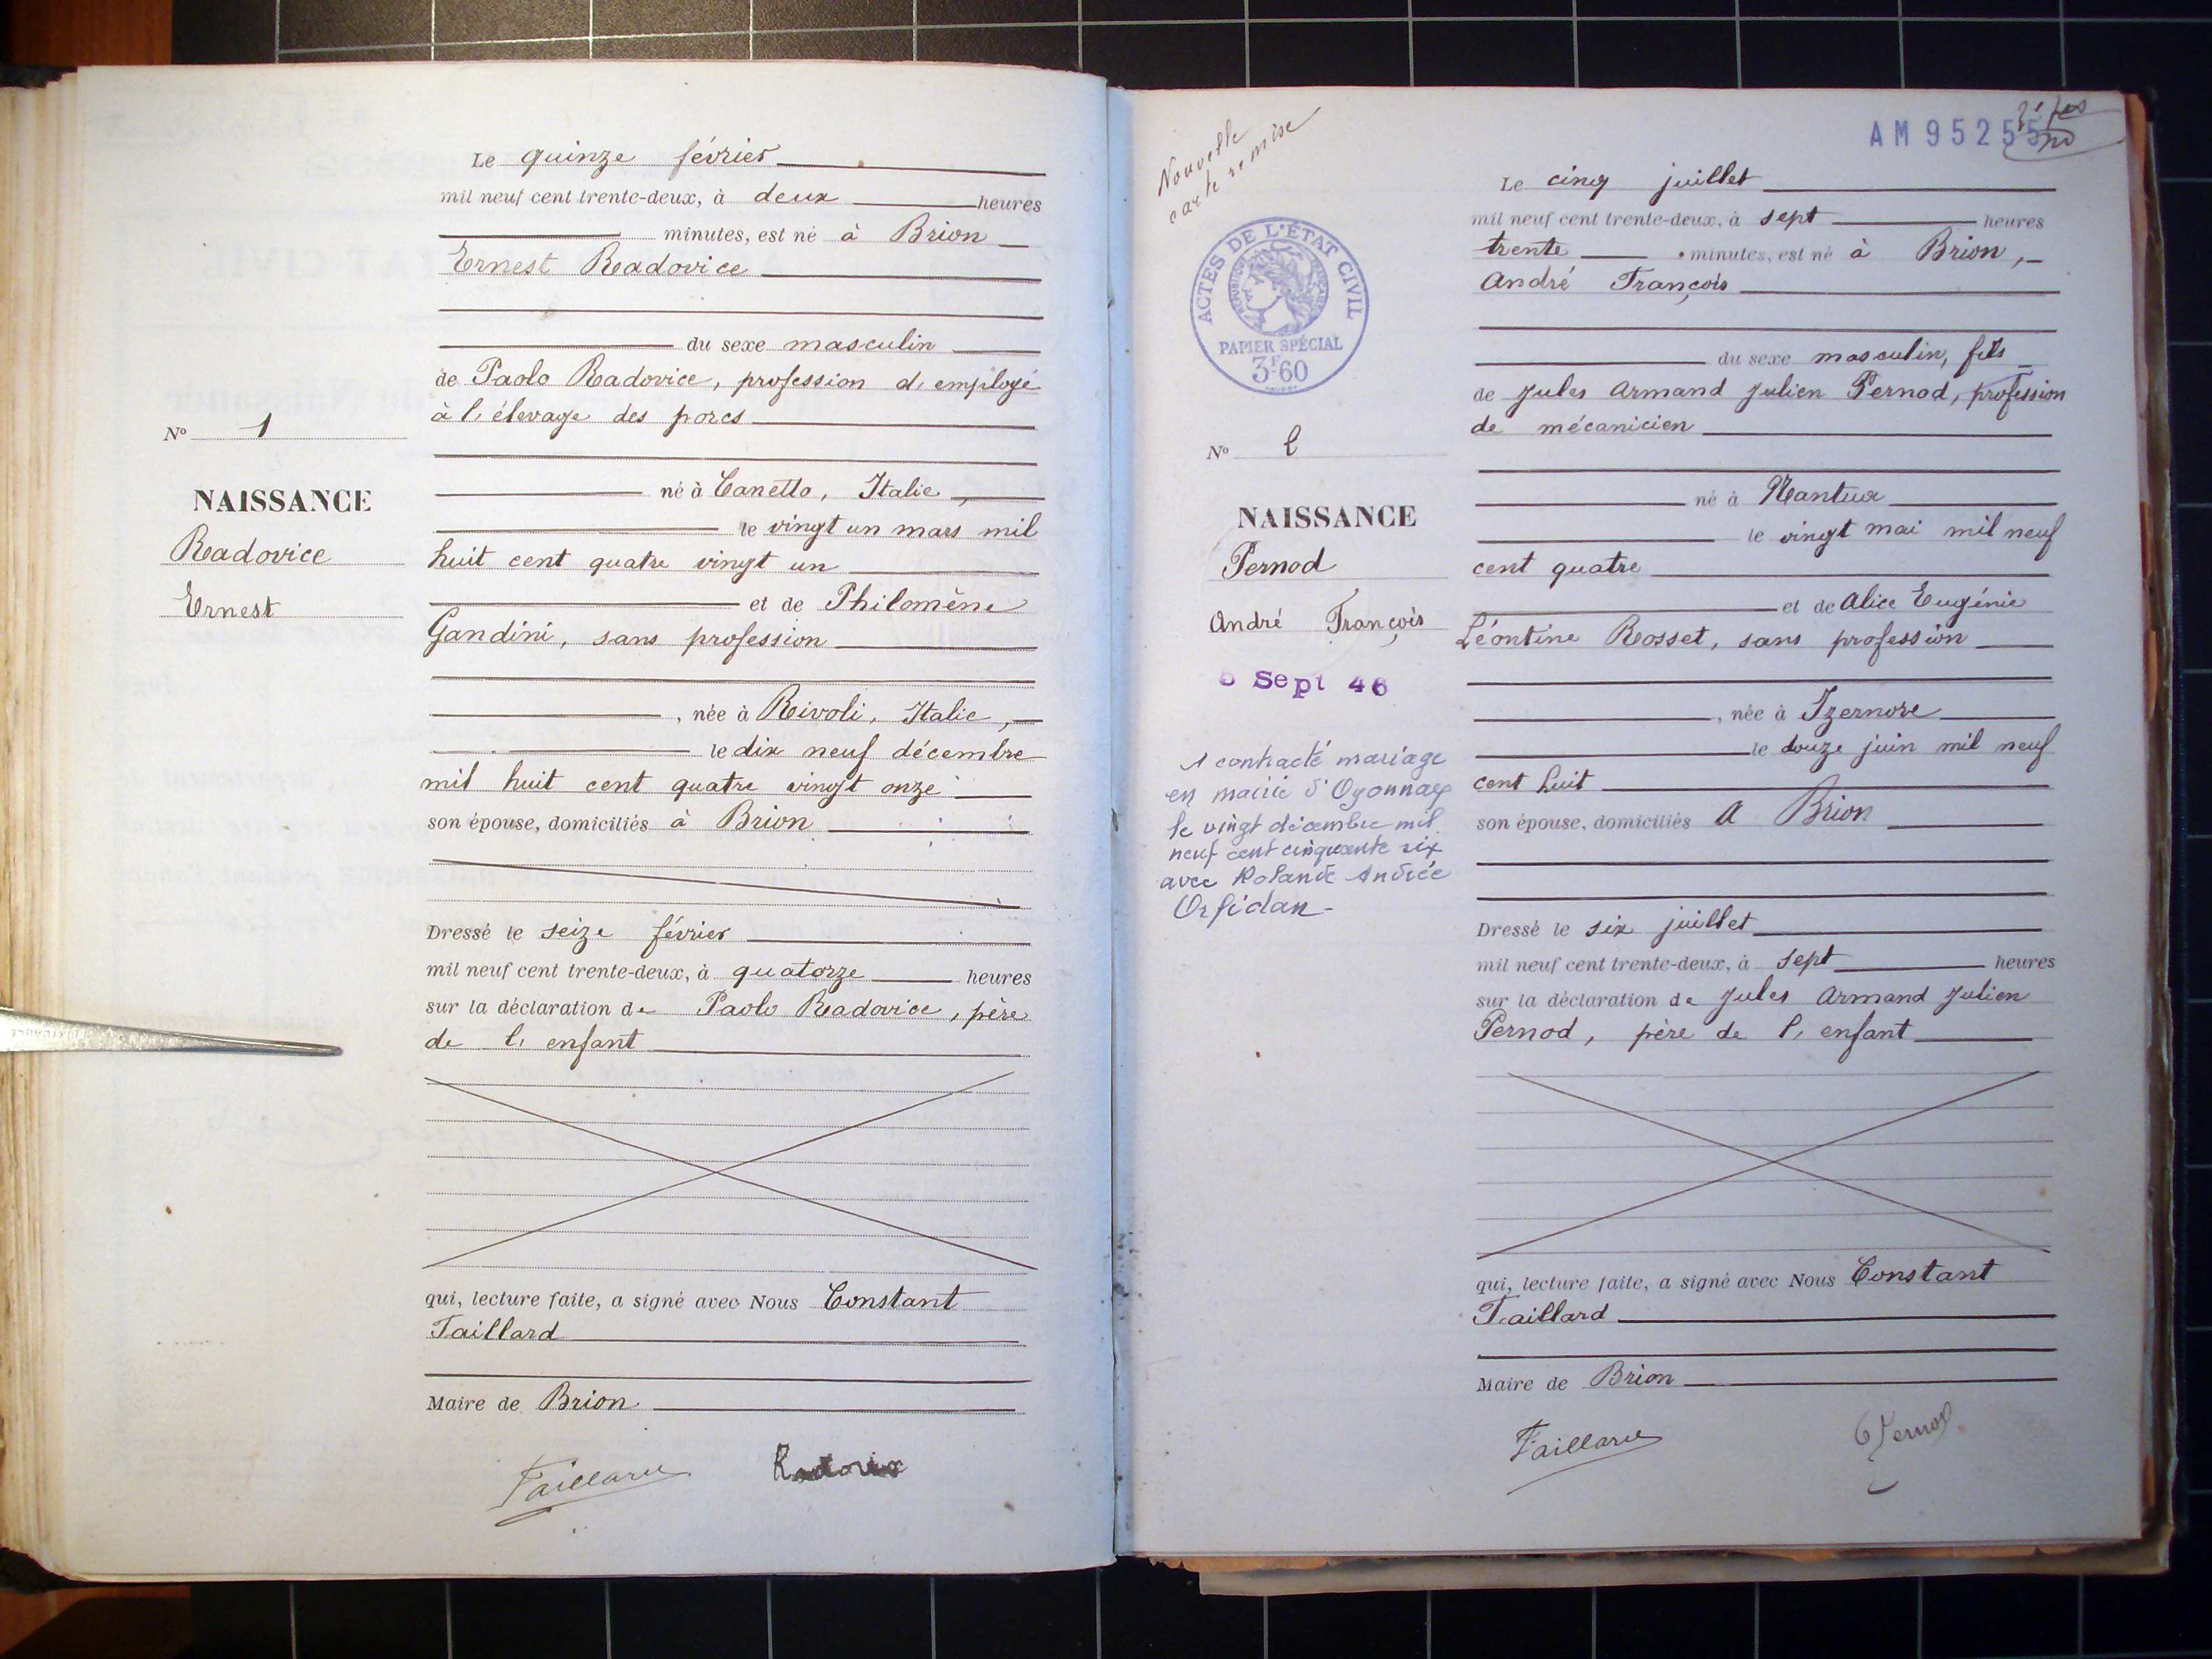 Le quinze février
mil neuf cent trente-deux, à deux heures
minutes, est né à Brion
Ernest Radovice
du sexe masculin
de Paolo Radovice, profession d'employé
à l'élevage des porcs
né à Canetto, Italie,
le vingt un mars mil
huit cent quatre vingt un
et de Philomène
Gandini, sans profession
, née à Rivoli, Italie,
le dix neuf décembre
mil huit cent quatre vingt onze
son épouse, domiciliés à Brion
Dressé le seize février
mil neuf cent trente-deux, à quatorze heures
sur la déclaration de Paolo Radovice, père
de l'enfant
qui, lecture faite, a signé avec Nous Constant
Taillard
Maire de Brion
Taillard
N° 1
NAISSANCE
Radovice
Ernest
Nouvelle
carte remise
AM 95255
ACTES DE L'ÉTAT CIVIL
PAPIER SPÉCIAL
3F60
N° 2
NAISSANCE
Pernod
André François
Sept 46
A contracté mariage
en mairie d'Oyonnax
le vingt décembre mil
neuf cent cinquante six
avec Rolande Andrée
Le cinq juillet
mil neuf cent trente-deux, à sept heures
trente minutes, est né à Brion,
André François
du sexe masculin, fils
de Jules Armand Julien Pernod, profession
de mécanicien
né à Nantua
le vingt mai mil neuf
cent quatre
et de Alice Eugénie
Léontine Rosset, sans profession
, née à Izernore
le douze juin mil neuf
cent huit
son épouse, domiciliés A Brion
Dressé le six juillet
mil neuf cent trente-deux, à sept heures
sur la déclaration de Jules Armand Julien
Pernod, père de l'enfant
qui, lecture faite, a signé avec Nous Constant
Taillard
Maire de Brion
Taillard Pernod